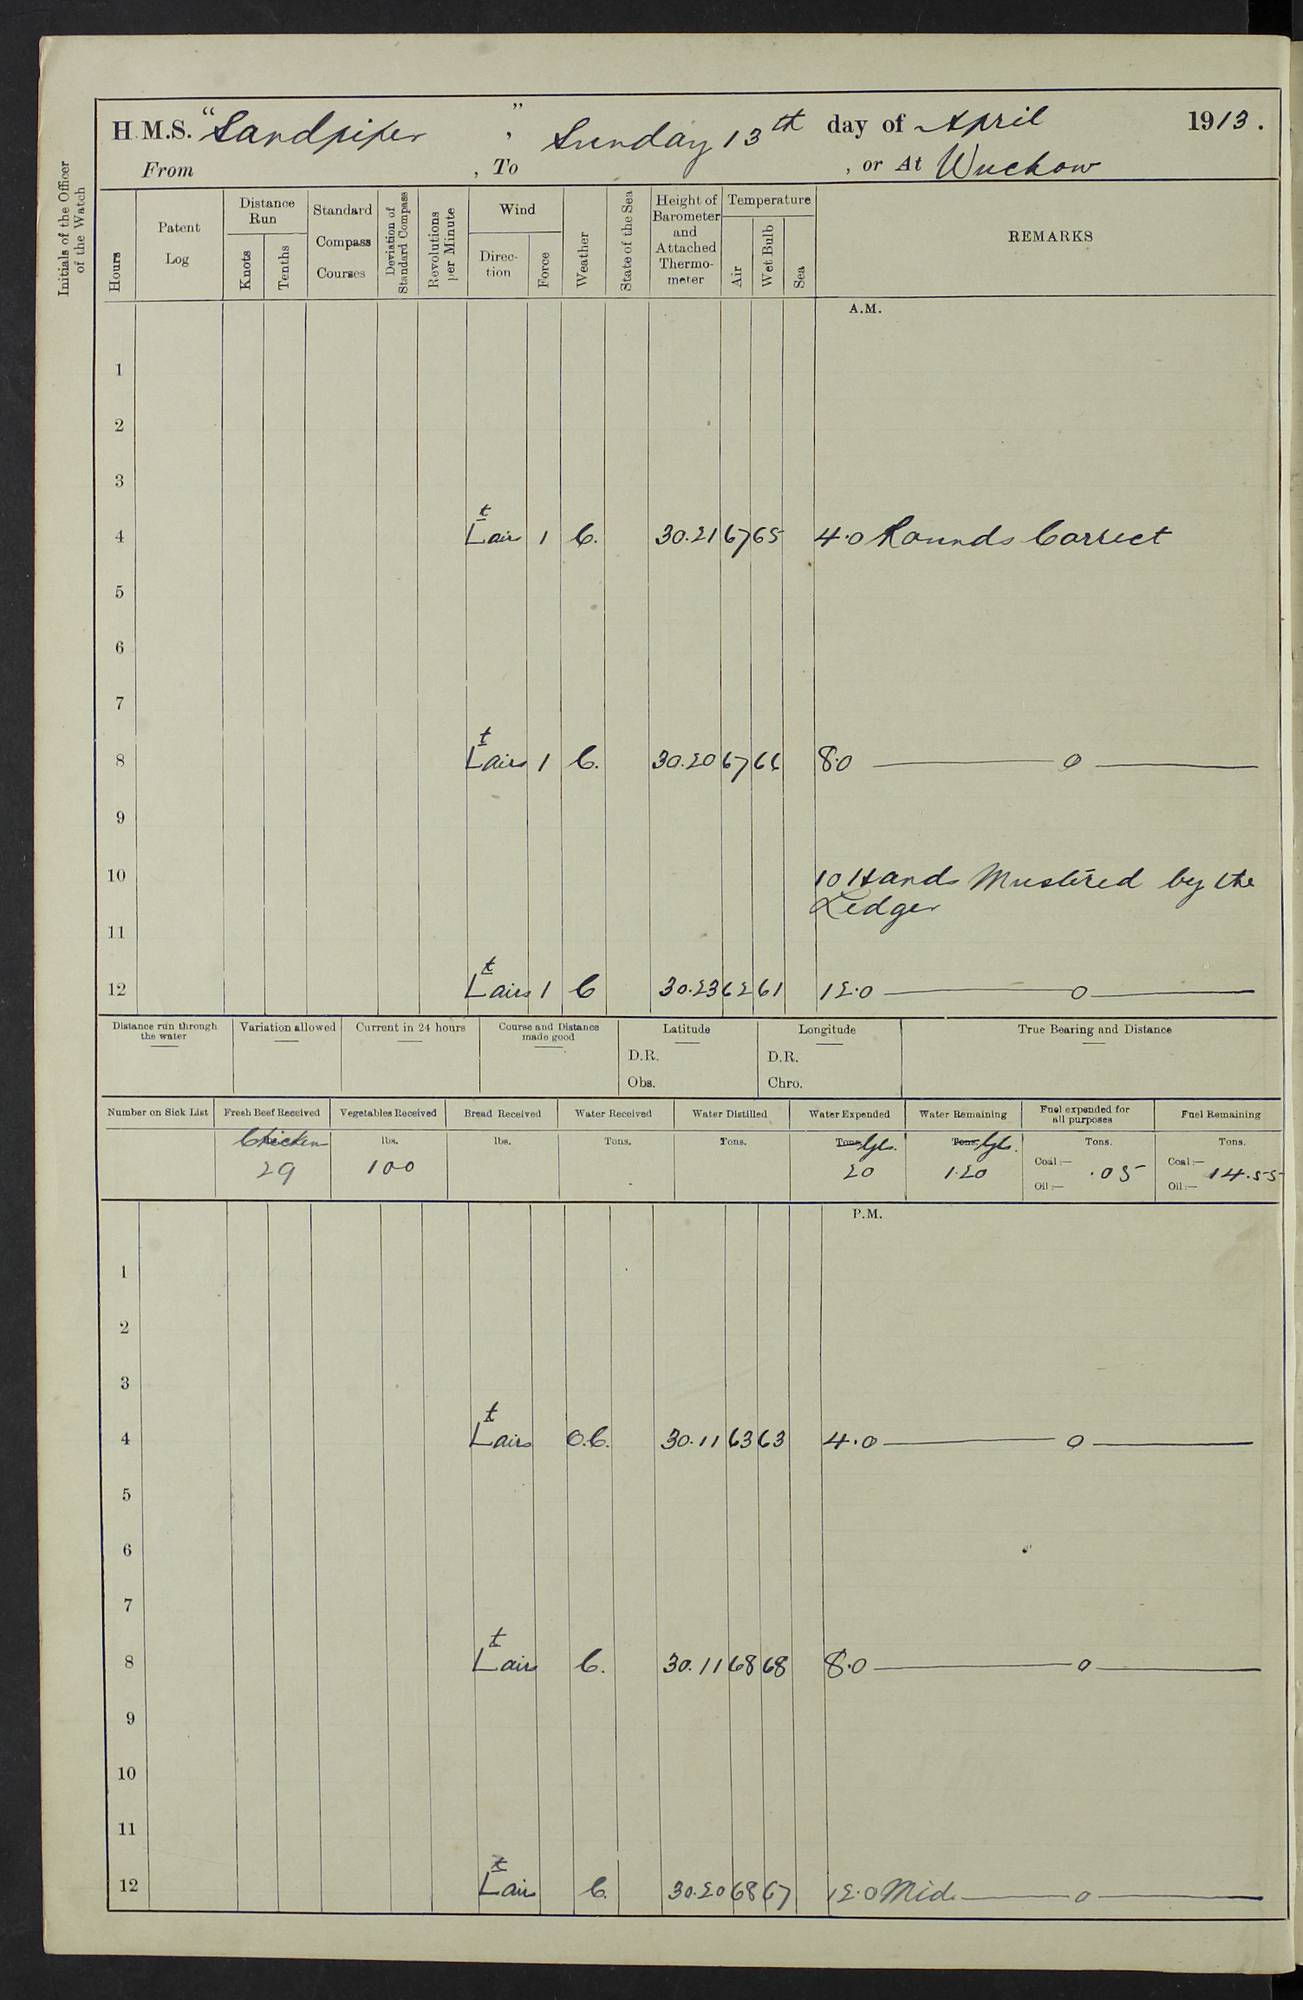 H.M.S. "Sandpiper", Sunday 13th day of April 1913.
From , To , or At Wuchow
Initials of the Officer of the Watch
Hours
Patent Log
Distance Run
Knots
Tenths
Standard Compass Courses
Deviation of Standard Compass
Revolutions per Minute
Wind
Direction
Force
Weather
State of the Sea
Height of Barometer and Attached Thermometer
Temperature
Air
Wet Bulb
Sea
REMARKS
A.M.
1
2
3
4 Lt air 1 C. 30.21 67 65 4.0 Rounds Correct
5
6
7
8 Lt airs 1 C. 30.20 67 66 8.0 — o —
9
10 10 Hands Mustered by the
Ledger
11
12 Lt airs 1 C 30.23 62 61 12.0 — o —
Distance run through the water
Variation allowed
Current in 24 hours
Course and Distance made good
Latitude
D.R.
Obs.
Longitude
D.R.
Chro.
True Bearing and Distance
Number on Sick List
Fresh Beef Received
Chicken
29
Vegetables Received
lbs.
100
Bread Received
lbs.
Water Received
Tons.
Water Distilled
Tons.
Water Expended
Tons Gls.
20
Water Remaining
Tons. Gls.
120
Fuel expended for all purposes
Tons.
Coal:— .05
Oil:—
Fuel Remaining
Tons.
Coal:— 14.55
Oil:—
P.M.
1
2
3
4 Lt airs O.C. 30.11 63 63 4.0 — o —
5
6
7
8 Lt air C. 30.11 68 68 8.0 — o —
9
10
11
12 Lt air C. 30.20 68 67 12.0 Mid. — o —